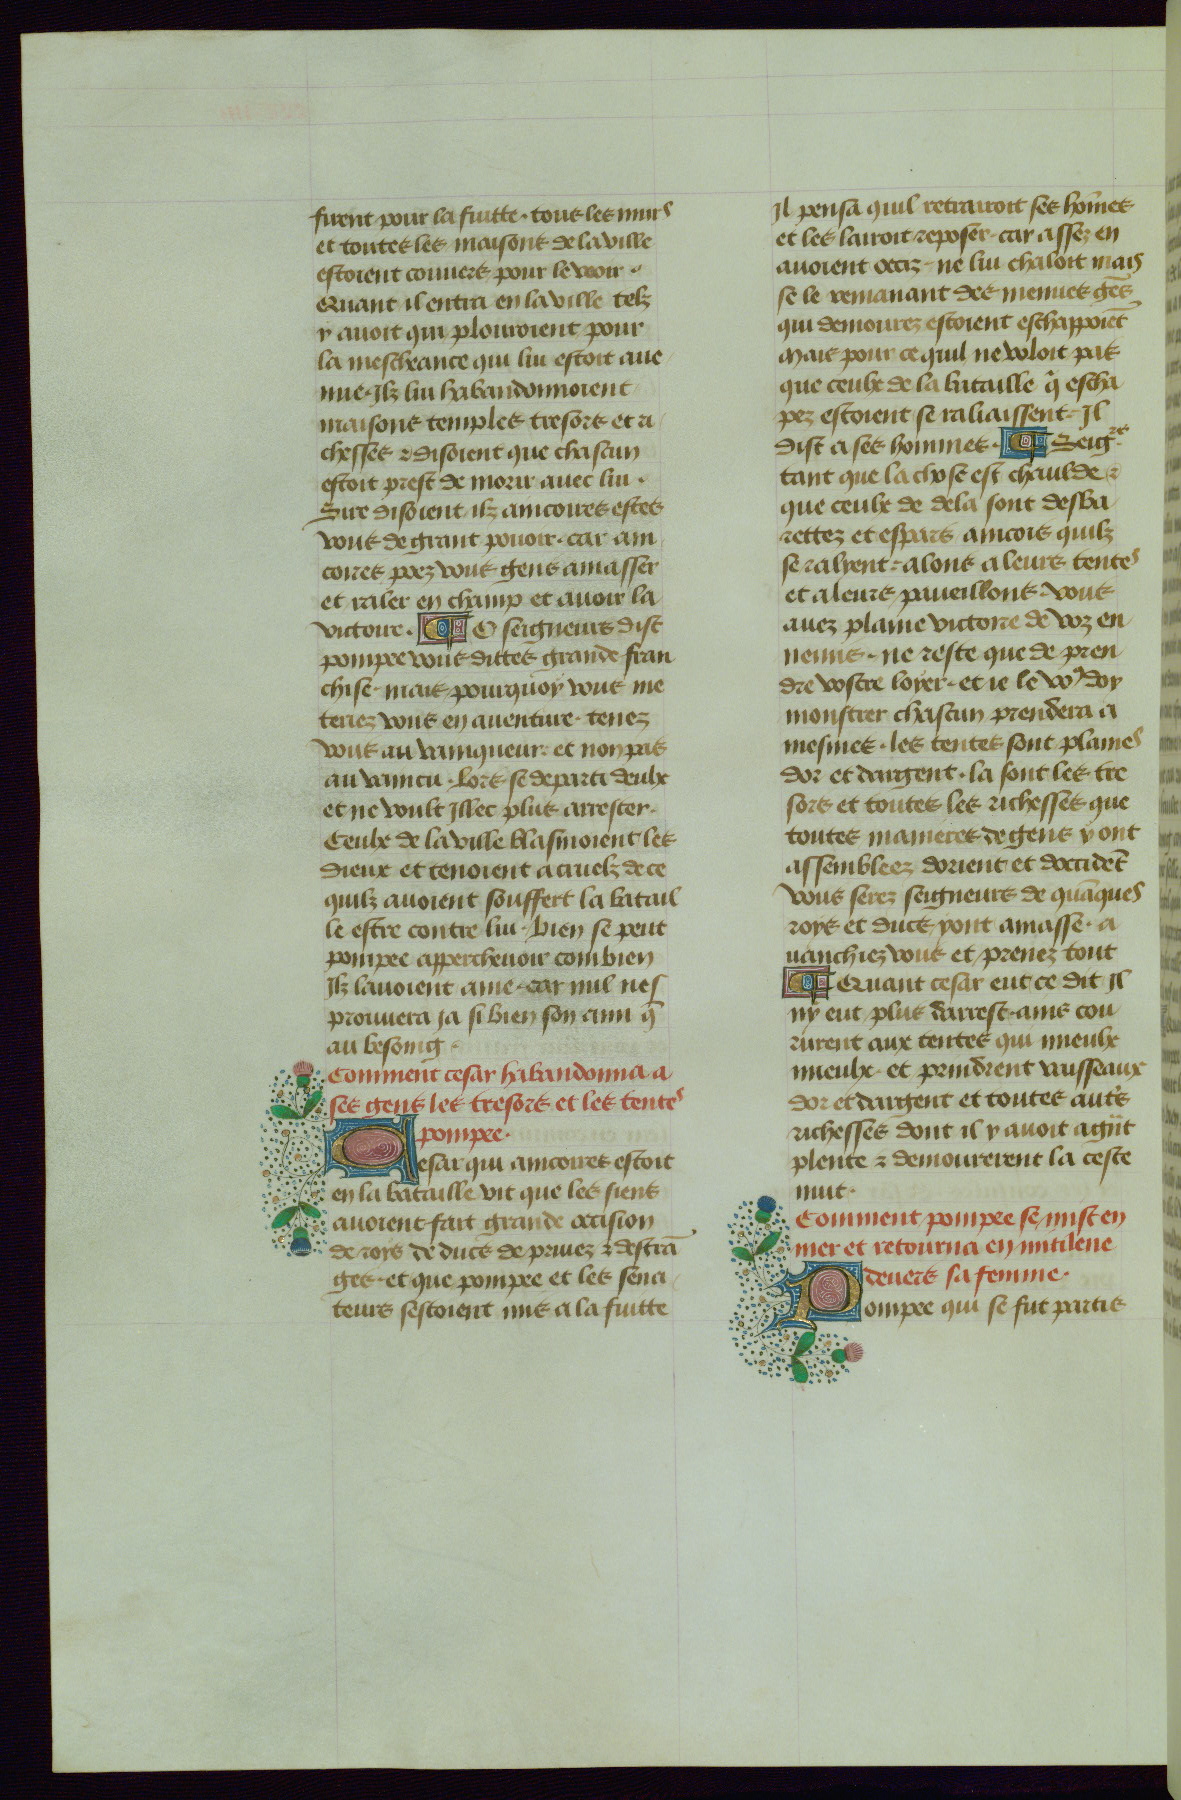 furent pour la fuitte. tous les murs
et toutes les maisons de la ville
estoient couuers pour le veoir.
Quant il entra en la ville telz
y auoit qui plouroient pour
la mescheance qui lui estoit aue
nue. Ilz lui habandonnoient
maisons temples tresors et ri
chesses ⁊ disoient que chascun
estoit prest de morir auec lui.
Sire disoient ilz aincoires estes
vous de grant pouoir. car ain
coires poez vous gens amasser
et raler en champ et auoir la
victoire. O seigneurs dist
pompee vous dittes grande fran
chise. mais pourquoy vous me
teriez vous en auenture. tenez
vous au vainqueur. et non pas
au vaincu. Lors se departi deulx
et ne voult Illec plus arrester.
Ceulx de la ville blasmoient les
dieux et tenoient a cruelz de ce
quilz auoient souffert la batail
le estre contre lui. Bien se peut
pompee apperchevoir combien
Ilz lauoient ame. car nul nes
prouuera ja si bien son ami q̄
au besoing.
Comment cesar habandonna a
ses gens les tresors et les tentes
pompee.
Cesar qui aincoires estoit
en la bataille vit que les siens
auoient fait grande occision
de roys de ducs de priuez ⁊ destrā
ges. et que pompee et les sena
teurs sestoient mis a la fuitte
Il pensa quil retrairoit ses hōmes
et les lairoit reposer. car assez en
auoient occiz. ne lui chaloit mais
se le remanant des menues gēs
qui demourez estoient eschappoiēt
Mais pour ce quil ne voloit pas
que ceulx de la bataille q̄ escha
pez estoient se raliaissent. Il
dist a ses hommes. Seigrs
tant que la chose est chaulde ⁊
que ceulx de dela sont desba
rettez et espars aincois quilz
se ralyent. alons a leurs tentes
et a leurs paueillons. vous
auez plaine victoire de voz en
nemis. ne reste que de pren
dre vostre loyer. et ie le vo9 doy
monstrer chascun prendera a
mesmes. les tentes sont plaines
dor et dargent. la sont les tre
sors et toutes les richesses que
toutes manieres de gens y ont
assembleez dorient et doccidēt
vous serez seigneurs de quāques
roys et ducs y ont amasse. a
uanchiez vous et prenez tout
Quant cesar eut ce dit Il
ny eut plus darrest. ains cou
rurent aux tentes qui mieulx
mieulx. et prindrent vaisseaux
dor et dargent et toutes autr̄s
richesses dont il y auoit a grāt
plente ⁊ demourerent la ceste
nuit.
Comment pompee se mist en
mer et retourna en mitilene
deuers sa femme.
Pompee qui se fut partis